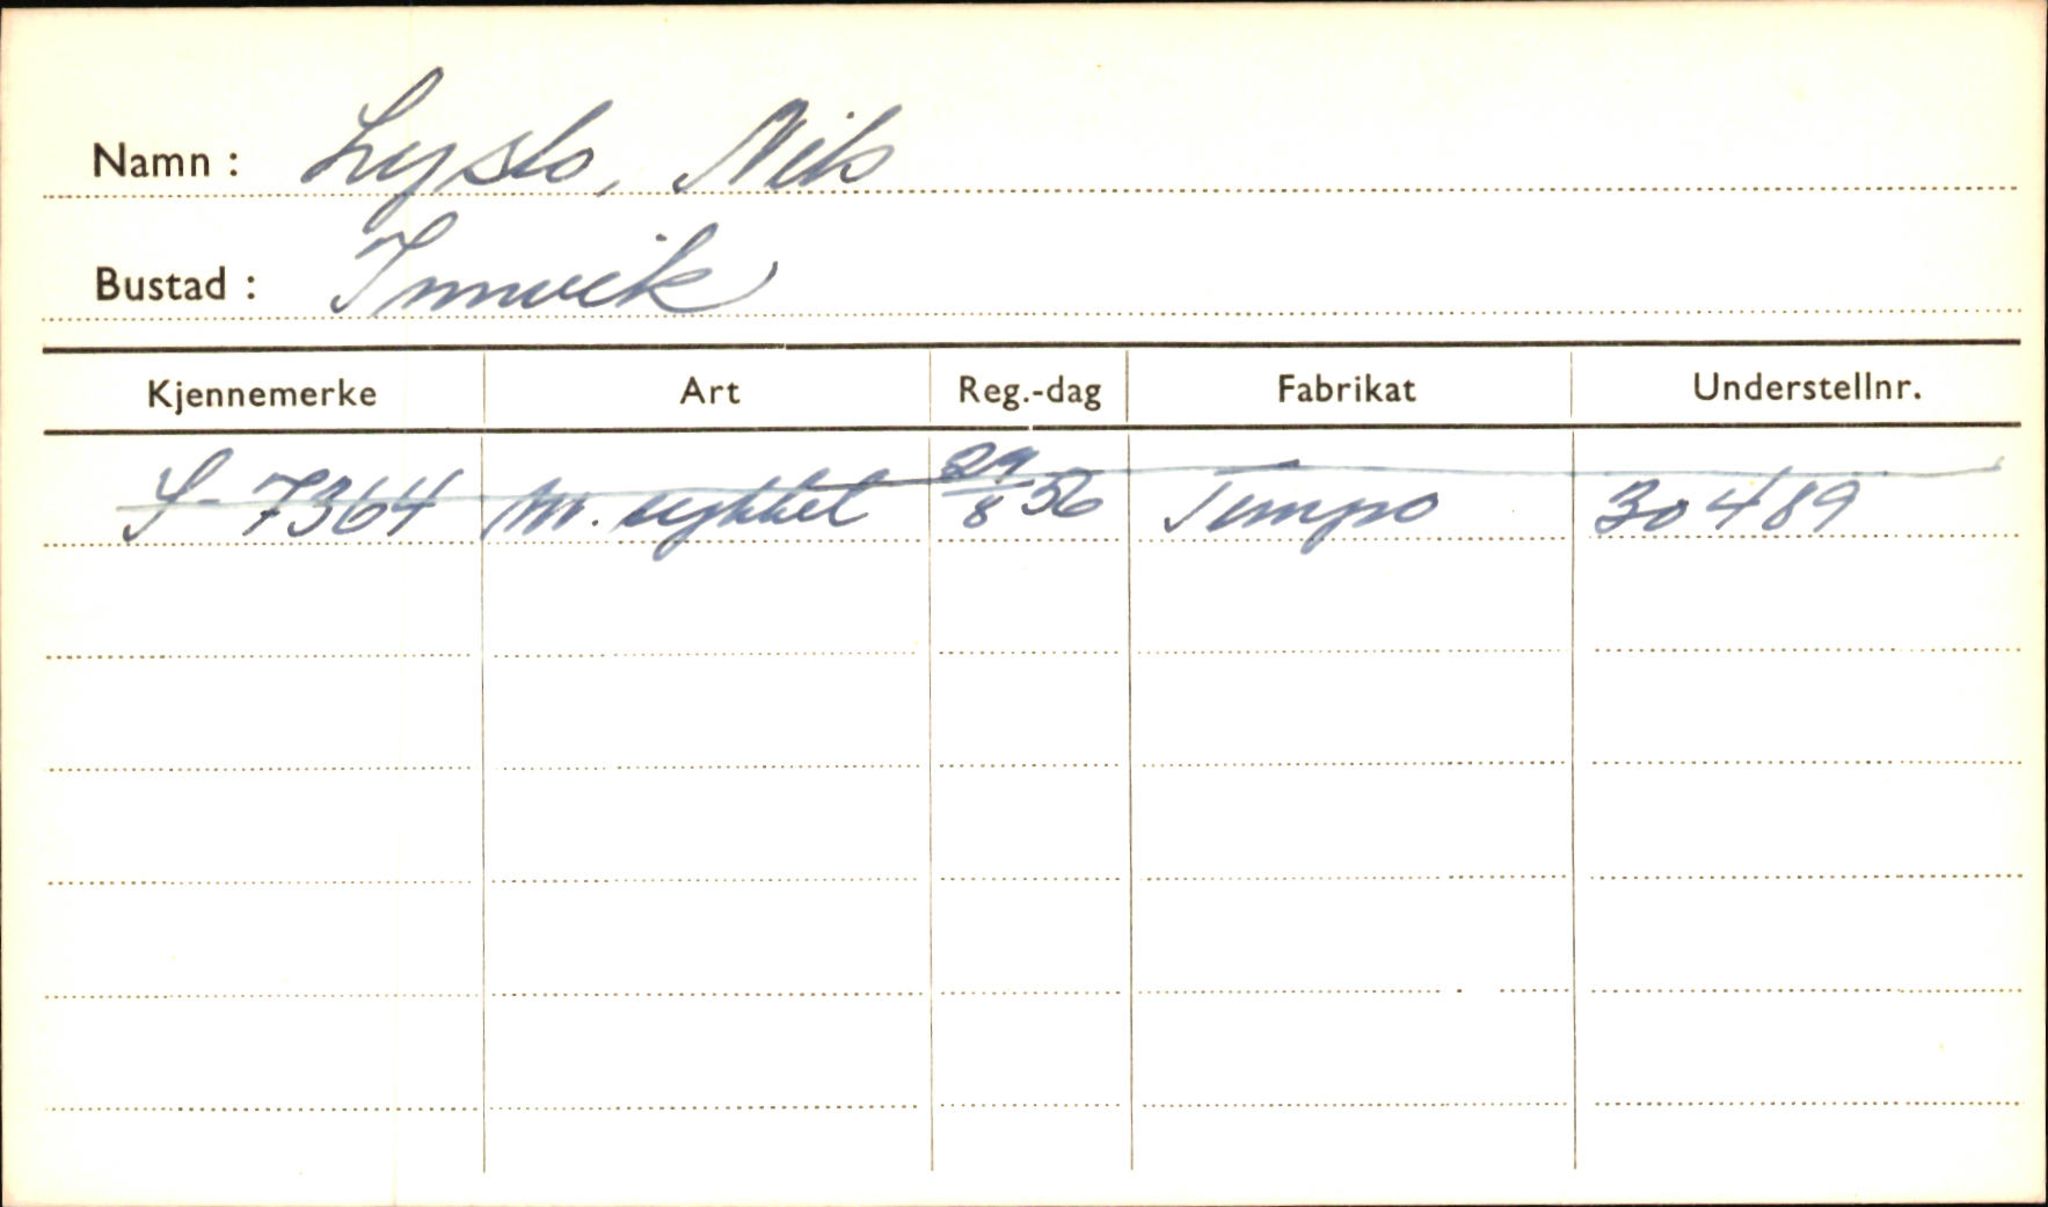 Namn : Lyslo, Nils
Bustad : Innvik
Kjennemerke Art Reg.-dag Fabrikat Understellnr.
S-7364 M. sykkel 29/8 56 Tempo 30489